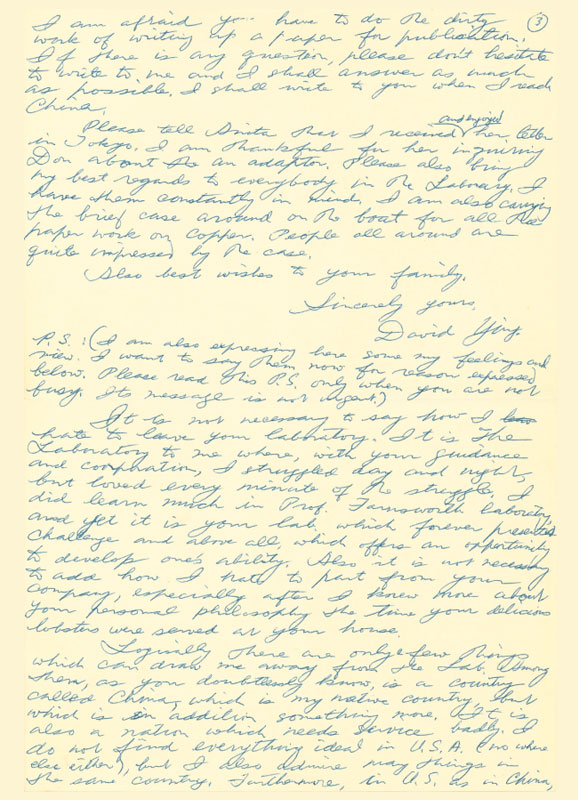 3
I am afraid you have to do the dirty
work of writing up a paper for publication.
If there is any question, please don't hesitate
to write to me and I shall answer as much
as possible. I shall write to you when I reach
China.
Please tell Anita that I received and enjoyed her letter
in Tokyo. I am thankful for her inquiring
Don about the an adaptor. Please also bring
my best regards to everybody in the Laborary. I
have them constantly in mind. I am also carrying
the brief case around on the boat for all the
paper work on copper. People all around are
quite impressed by the case.
Also best wishes to your family.
Sincerely yours,
David Ying.
P.S.: (I am also expressing here some my feelings and
view. I want to say them now for reason expressed
below. Please read this P.S. only when you are not
busy. Its message is not urgent.)
It is not necessary to say how I
hate to leave your laboratory. It is The
Laboratory to me where, with your guidance
and cooperation, I struggled day and night,
but loved every minute of the struggle. I
did learn much in Prof. Farnsworth laboratory,
and yet it is your lab. which forever presents
challenge and above all, which offers an opportunity
to develop one's ability. Also it is not necessary
to add how I hate to part from your
company, especially after I knew more about
your personal philosophy the time your delicious
lobsters were served at your house.
Logically there are only few things
which can draw me away from the Lab. Among
them, as you doubtlessly know, is a country
called China, which is my native country but
which is in addition, something more. It is
also a nation which needs service badly. I
do not find everything ideal in U.S.A. (no where
else either), but I also admire may things in
the same country. Furthermore, in U.S. as in China,